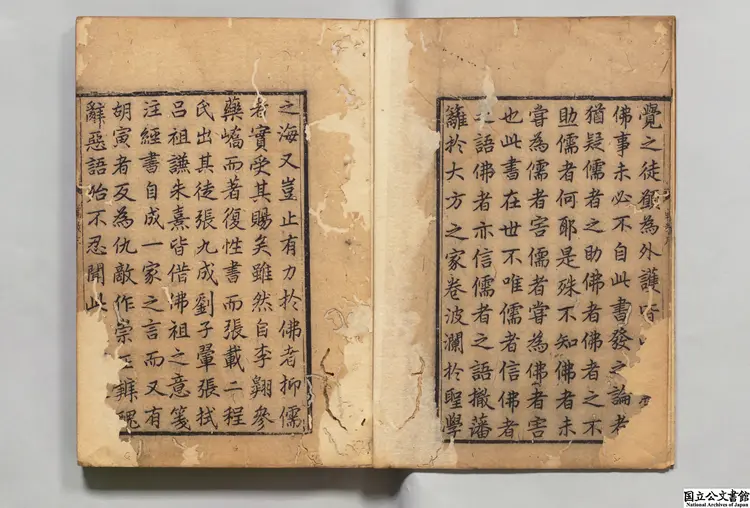 覺之徒為外護
佛事未必不自此書發之論者
猶疑儒者之助佛者佛者之不
助儒者何耶是殊不知佛者未
嘗為儒者害儒者嘗為佛者害
也此書在世不唯儒者信佛者
之語佛者亦信儒者之語撤藩
籬於大方之家卷波瀾於聖學
之海又豈止有力於佛者抑儒
者實受其賜矣雖然自李翱參
藥嶠而著復性書而張載二程
氏出其徒張九成劉子翬張栻
呂祖謙朱熹皆借佛祖之意箋
注經書自成一家之言而又有
胡寅者反為仇敵作崇正辨醜
辭惡語殆不忍聞此
国立公文書館
National Archives of Japan